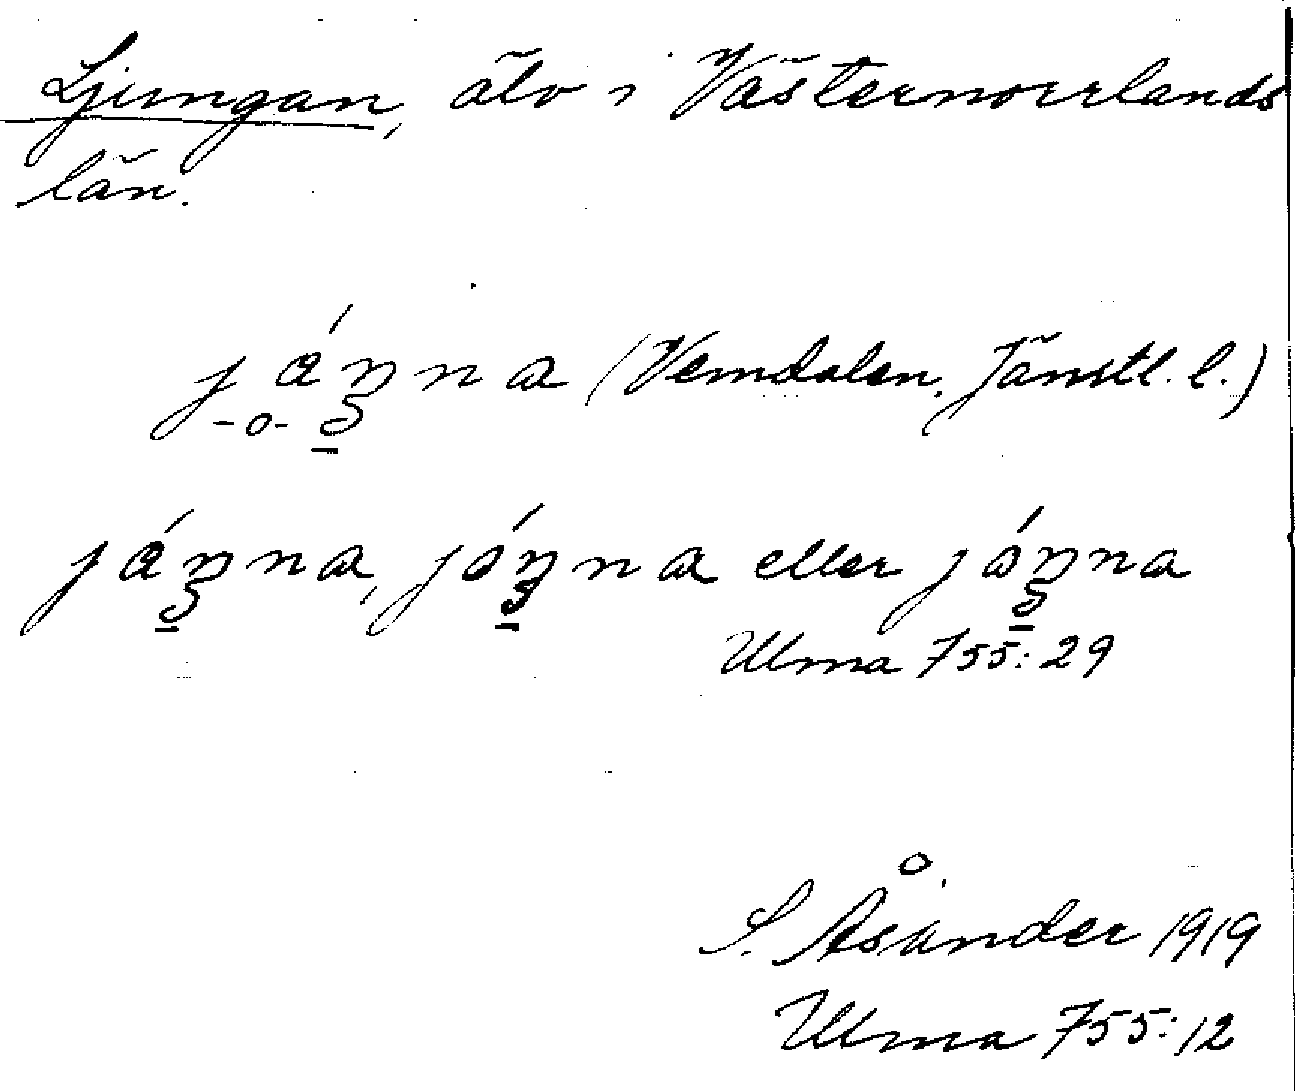 Ljungan, älv i Västernorrlands
län.
jánna (Vemdalen, Jämtl. l.)
-o-
jánna, jónna eller jónna
Ulma 755:29
S. Åsander 1919
Ulma 755:12